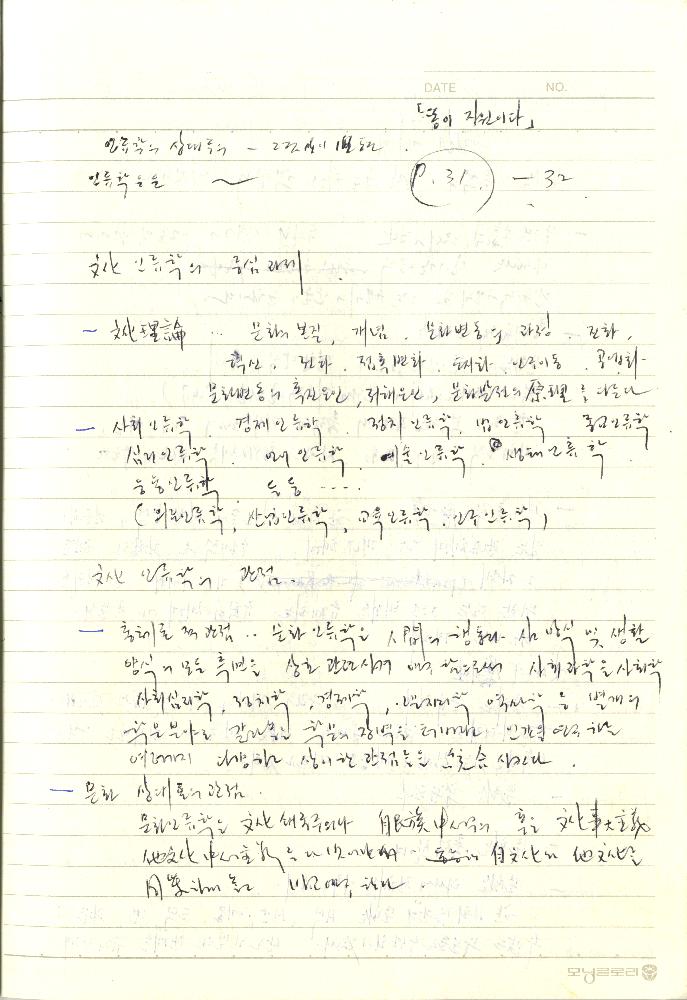 DATE NO.
「똥이 자원이다」
인류학의 상대주의 –
인류학은 ~ P. 31 – 32
文化 인류학의 중심과제
– 文化理論 … 문화의 본질, 개념, 문화변동의 과정, 진화,
혁신, 전화, 접촉변화, 도시화, 인구이동, 공업화
문화변동의 촉진요인, 저해요인, 문화발전의 原理를 다룬다
– 사회인류학, 경제인류학, 정치인류학, 법인류학, 종교인류학
심리인류학, 언어인류학, 예술인류학, 생태인류학,
응용인류학 등등 ····
(의료인류학, 산업인류학, 교육인류학, 인구인류학)
文化 인류학의 관점.
– 총체론적 관점 ·· 문화인류학은 人間의 행동과 삶 방식 및 생활
양식의 모든 측면을 상호 관련시켜 연구함으로써 사회과학을 사회학
사회심리학, 정치학, 경제학, 인문지리학, 역사학 등 별개의
학문분야로 갈라놓는 학문의 장벽을 인간을 연구하는
다양하고 상이한 관점들을 統合시킨다.
– 문화 상대론의 관점.
문화인류학은 文化 自民族中心的 혹은 文化事大主義
他文化中心主義 自文化와 他文化를
보고 연구한다
모닝글로리